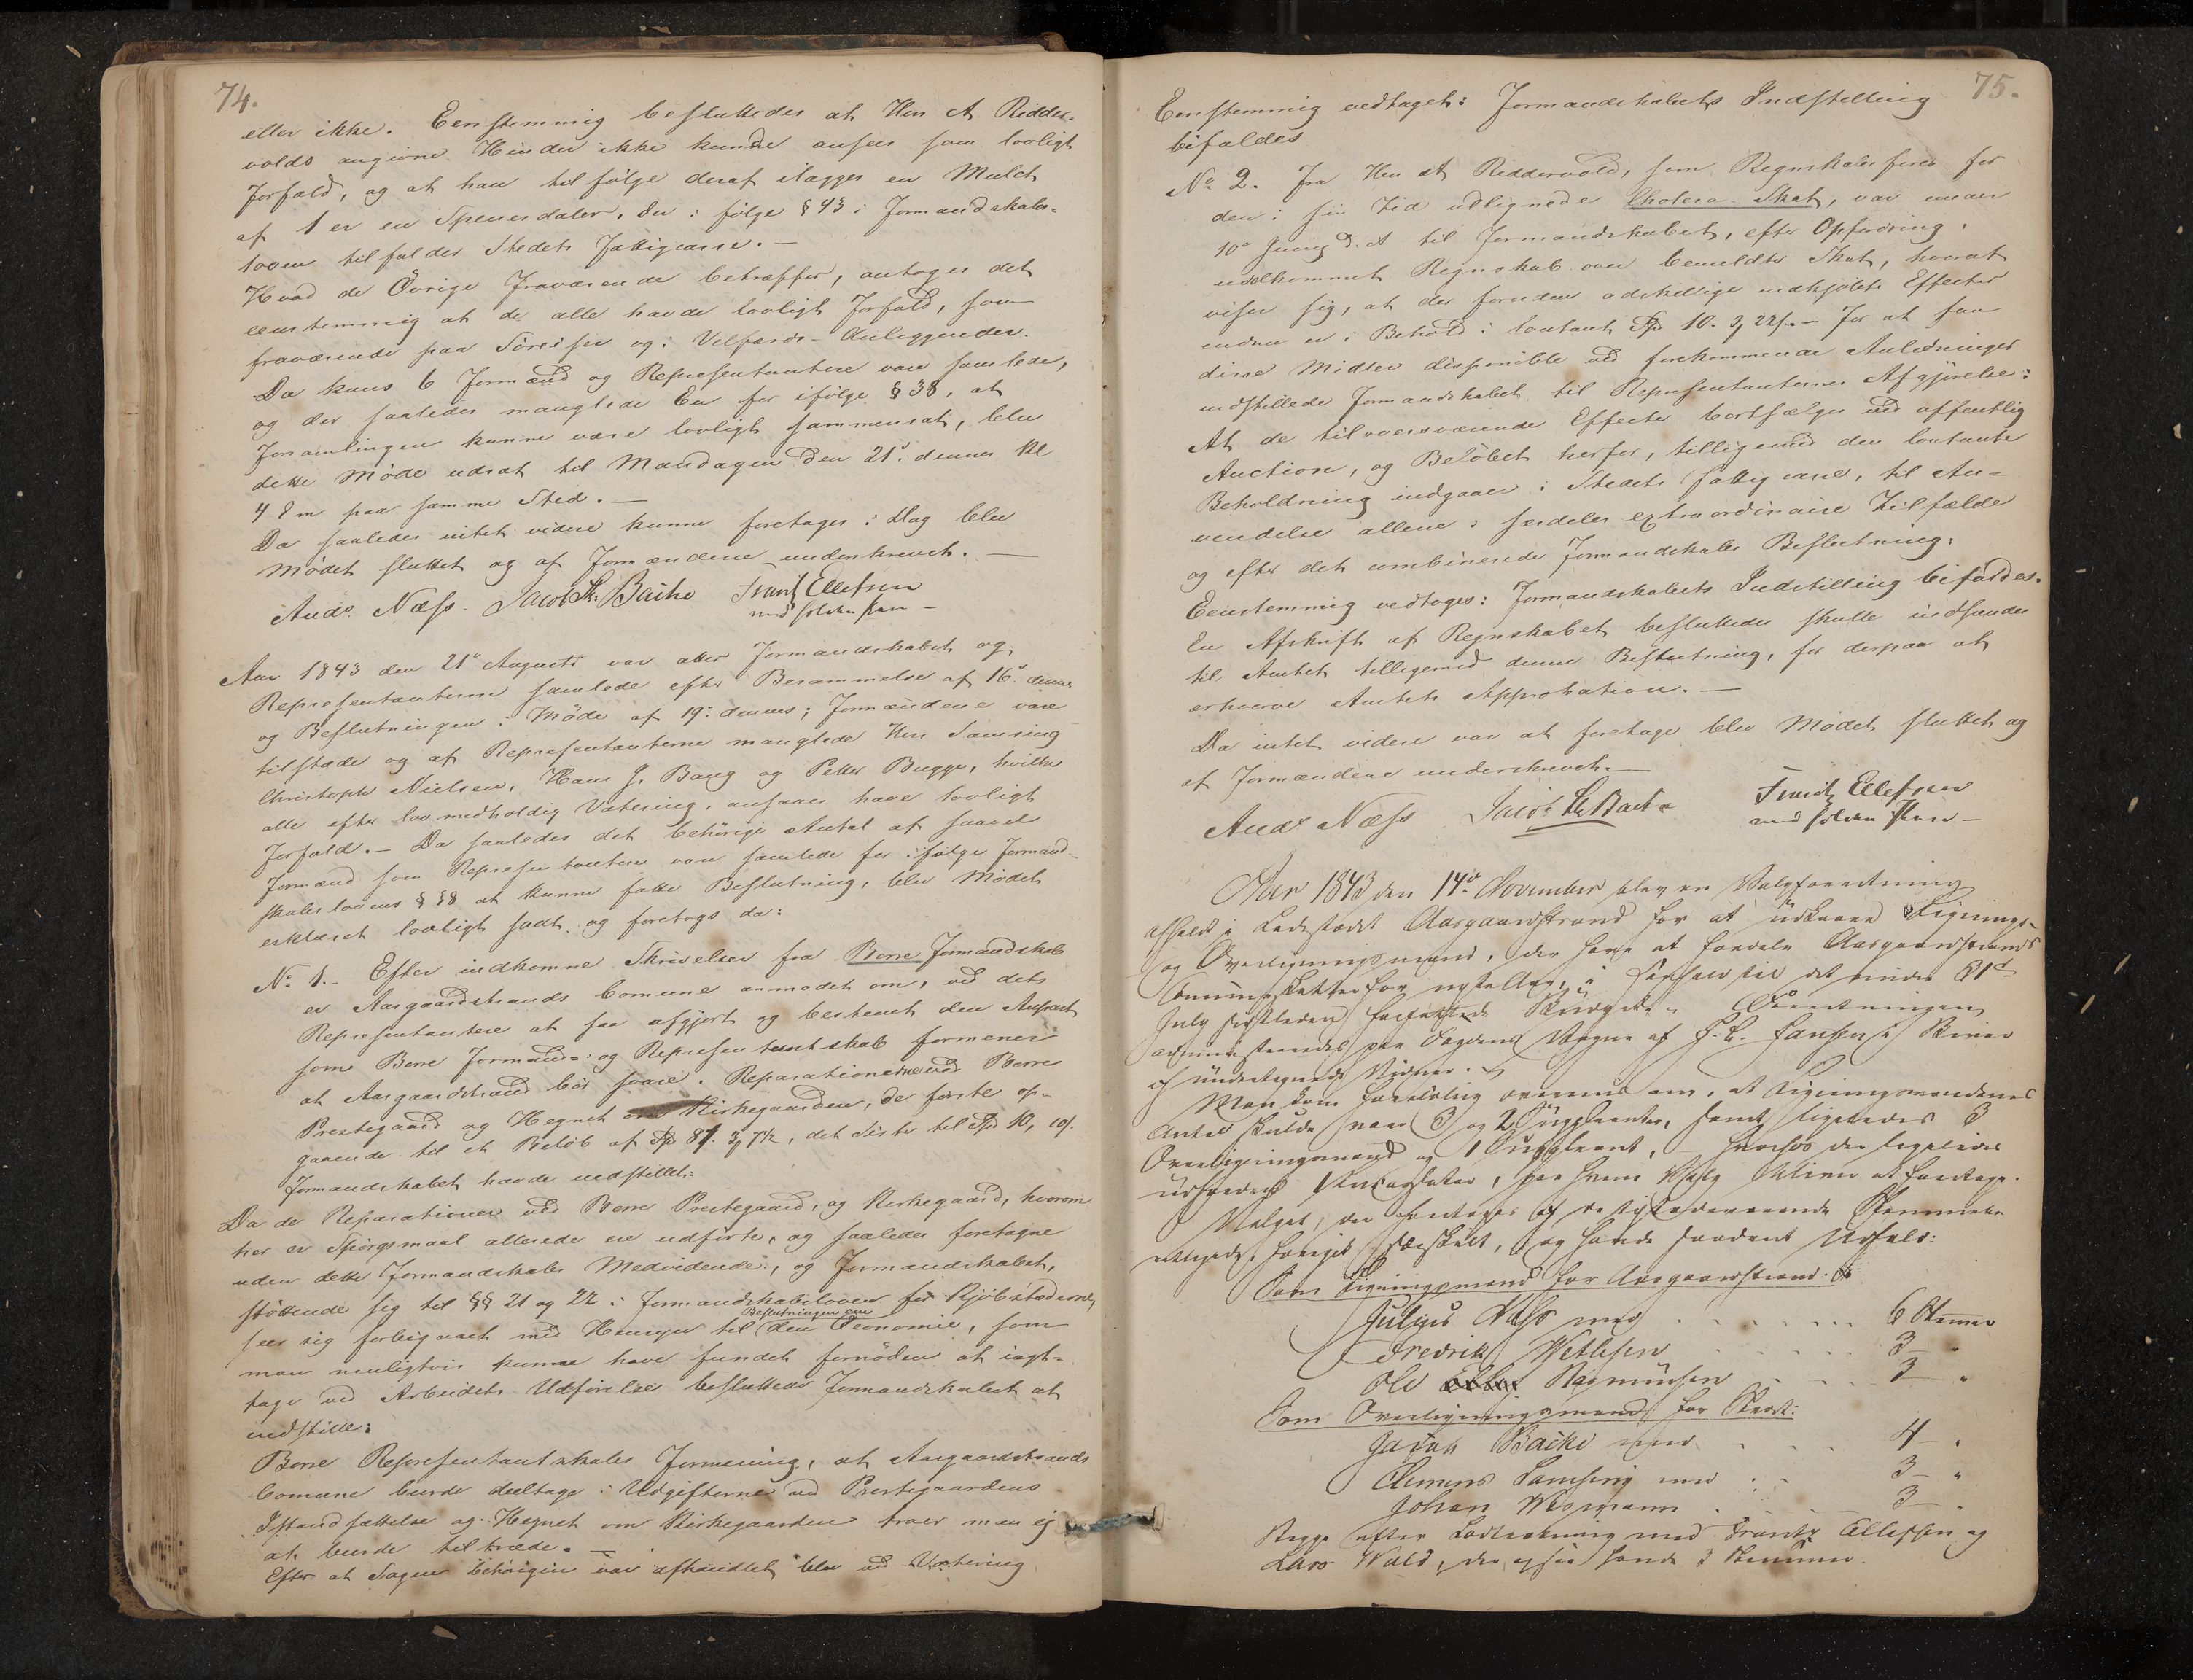 74.
eller ikke. Eenstemmig besluttedes at Herr A. Ridder-
volds angivne Hinder ikke kunde ansees som lovligt
Forfald, og at han til følge deraf ilægges en Mulct
af 1 er en Speciesdaler, der i følge § 43 i Formandskabs-
loven tilfalder Stedets Fattigcasse. —
Hvad de Övrige Fraværende betræffer, antoges det
eenstemmig at de alle havde lovligt Forfald, som
fraværende paa Söreiser og i Velfærds-Anliggender.
Da kuns 6 Formænd og Repræsentantere vare samlede,
og der saaledes manglede Een for ifølge § 38, at
Forsamlingen kunne være lovligt sammensat, blev
dette Møde udsat til Mandagen den 21de dennes Kl
4 Em paa samme Sted. —
Da saaledes intet videre kunne foretages i Dag blev
Mødet sluttet og af Formændene underskrevet. —
Ands. Næss. Jacob Hr. Bache Frantz Ellefsen
med holden Pen —
Aar 1843 den 21de August var atter Formandskabet og
Repræsentanterne samlede efter Berammelse af 16de dennes
og Beslutningen i Møde af 19de dennes; Formændene vare
tilstæde og af Repræsentanterne manglede Herr Samsing
Christoph Nielsen, Hans J. Bang og Petter Bugge, hvilke
alle efter lovmedholdig Votering, ansaaes have lovligt
Forfald. — Da saaledes det behörige Antal af saavel
Formænd som Repræsentantere vare samlede for ifølge Formand-
skabslovens § 38 at kunne fatte Beslutning, blev Mödet
erklæret lovligt sadt og foretogs da:
No 1. Efter indkomne Skrivelser fra Borre Formandskab
er Aasgaardstrands Comune anmodet om, ved dets
Repræsentantere at faa afgjort og bestemt den Anpart
som Borre Formænds- og Repræsentantskab formener
at Aasgaardstrand bör svare i Reparationerne ved Borre
Prestegaard og Hegnet om Kirkegaarden, de første op-
gaaende til et Belöb af Spd 87. 3 7½, det sidste til Spd 10, 10.
Formandskabet havde indstillet:
Da de Reparationer ved Borre Prestegaard, og Kirkegaard, hvorom
her er Spörgsmaal allerede ere udførte, og saaledes foretagne
uden dette Formandskabs Medvidende, og Formandskabet,
støttende sig til §§ 21 og 22 i Formandskabsloven for Kjöbstæderne,
seer sig forbigaaet med Hensyn til Beslutningen om den Oeconomie, som
man muligtvis kunne have fundet fornöden at iagt-
tage ved Arbeidets Udførelse besluttede Formandskabet at
indstille:
Borre Repræsentantskabs Formening, at Aasgaardstrands
Comune burde deeltage i Udgifterne ved Prestegaardens
Istandsættelse og Hegnet om Kirkegaarden troer man ej
at burde tiltræde. —
Efter at Sagen behörigen var afhandlet blev ved Votering
75.
Eenstemmig vedtaget: Formandskabets Indstilling
bifaldes
No 2. Fra Herr A Riddervold, som Regnskabsfører for
den i sin Tid udlignede Cholera-Skat, var under
10de Juni d. A til Formandskabet, efter Opfordring,
indkommet Regnskab over bemeldte Skat, hvoraf
viser sig, at der foruden adskillige indkjøbte Effecter
endnu er i Behold i contant Spd 10. 3, 22. — For at faa
disse Midler disponible ved forekommende Anledninger
indstillede Formandskabet til Repræsentanternes Afgjørelse:
At de tiloversværende Effecter bortsælges ved offentlig
Auction, og Belöbet herfor, tilligemed den contante
Beholdning indgaaer i Stedets Fattigcasse, til An-
vendelse allene i særdeles extraordinaire Tilfælde
og efter det combinerede Formandskabs Beslutning.
Eenstemmig vedtoges: Formandskabets Indstilling bifaldes.
En Afskrift af Regnskabet besluttedes skulle indsendes
til Amtet tilligemed denne Beslutning, for derpaa at
erhverve Amtets Approbation. —
Da intet videre var at foretage blev Mødet sluttet og
af Formændene underskrevet. —
Ands Næss Jacob Hr Bache Frantz Ellefsen
med holden Pen —
Aar 1843 den 14de November blev en Valgforretning
afholdt i Ladestædet Aasgaardstrand for at udkaare Lignings-
og Overligningsmænd, der have at fordele Aasgaardstrands
Communeskatter for nyt Aar, i Henhold til det under 31te
July sidstleden forfattede Budget. Forretningen
administreredes paa Fogdens Vegne af F. C. Hansen i
og undertegnede Vidner.
Man kom foreløbig overens om, at Ligningsmændenes
Antal skulde være 3 og 2 Suppleanter, samt ligeledes 3
Overligningsmænd og 1 Suppleant,
Valget, der foretoges af de tilstædeværende Stemmebe-
rettigede, foregik særskilt, og havde saadant Udfald:
Som Ligningsmænd for Aasgaardstrand:
Julius Næss med . . . . . . . 6 Stemmer
Fredrik Wetlesen . . . . . . 3 — "
Ole Rasmussen . . . 3 — "
Som Overligningsmænd for Stedet:
Jacob Bache med . . . . 4 — "
Clemens Samsing med . . 3 — "
Johan Wismann . . . . 3 — "
Begge efter Lodtrækning med Frantz Ellefsen og
Lars Wold, der ogsaa havde 3 Stemmer.